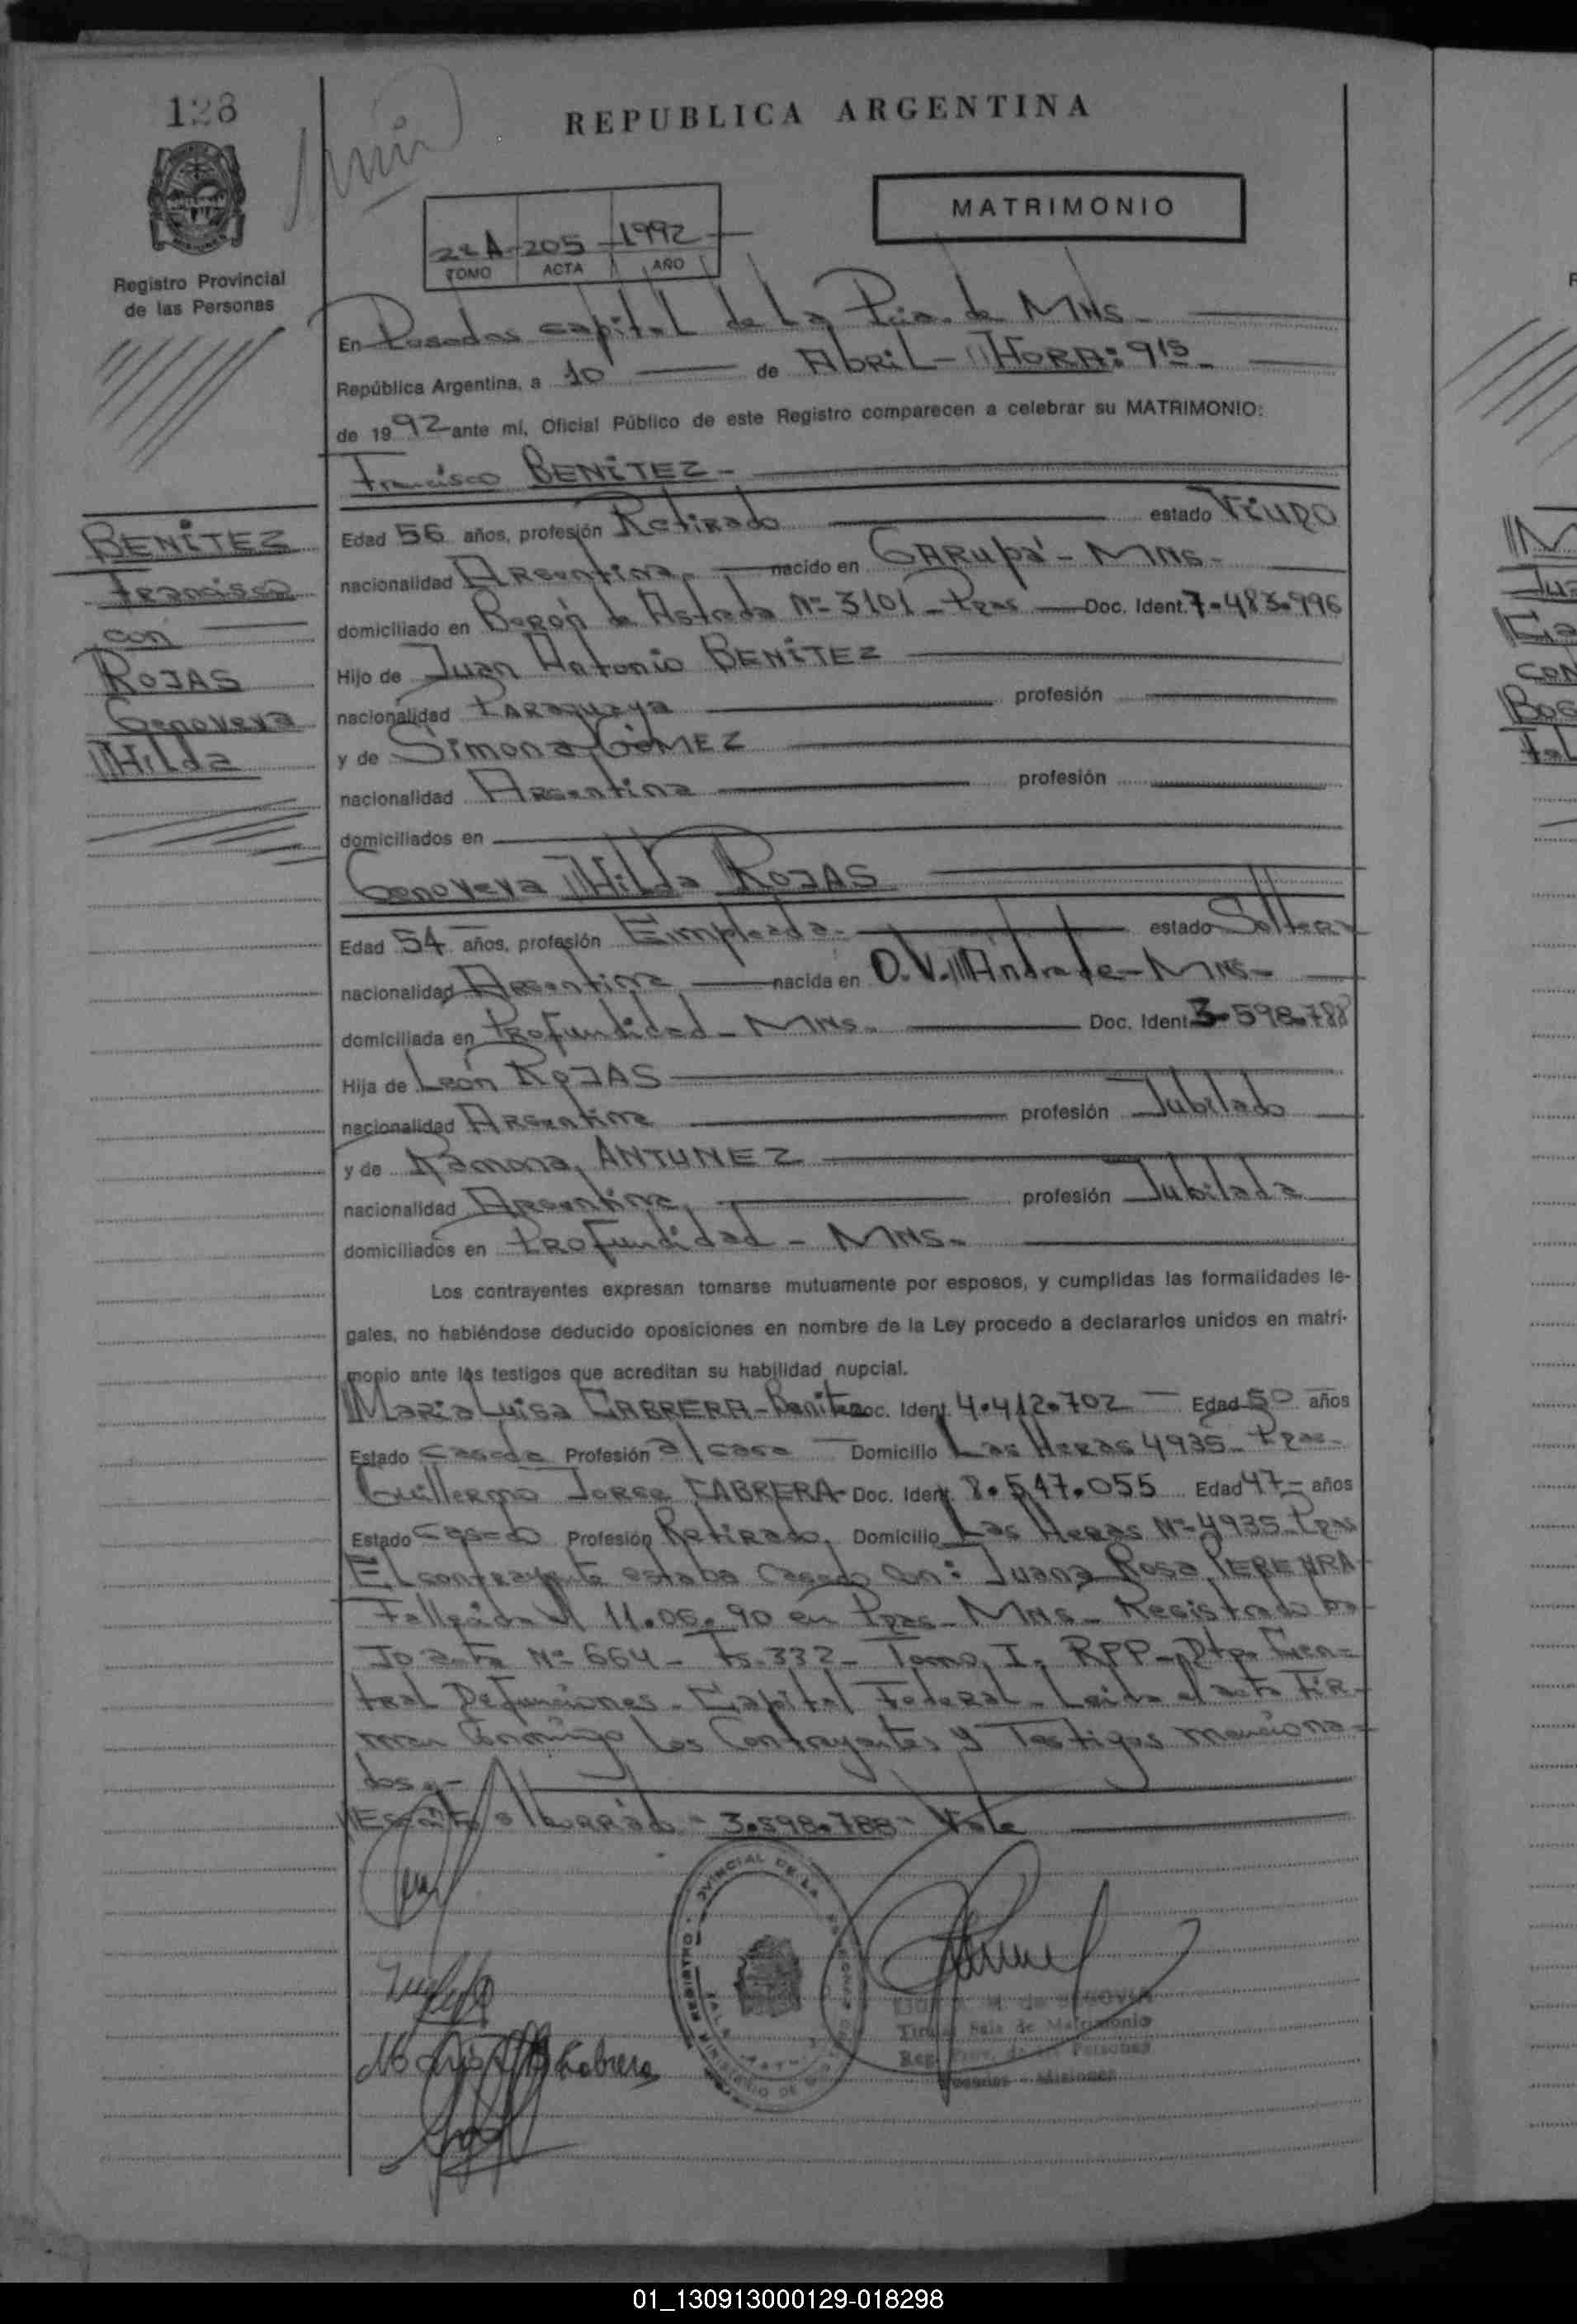 128
REPUBLICA ARGENTINA
MATRIMONIO
205 1992
TOMO ACTA AÑO
Registro Provincial
de las Personas
En Posadas capital de la Pcia. de MNS-
República Argentina, a 10 de Abril - HORA: 9 15-
de 1992 ante mí, Oficial Público de este Registro comparecen a celebrar su MATRIMONIO:
Francisco BENITEZ-
Edad 56 años, profesión Retirado estado Viudo
nacionalidad Argentina nacido en GARUPá - MNS-
domiciliado en Beron de Astrada Nº 3101 - Pzas Doc. Ident. 7.483.996
Hijo de Juan Antonio BENITEZ
nacionalidad Paraguaya profesión
y de Simona GOMEZ
nacionalidad Argentina profesión
domiciliados en
BENITEZ
Francisco
con
ROJAS
Genoveva
Hilda
Genoveva Hilda ROJAS
Edad 54 años, profesión Empleada- estado Soltera
nacionalidad Argentina nacida en O.V. Andrade - MNS-
domiciliada en Profundidad - MNS- Doc. Ident. 3.598.788
Hija de León ROJAS
nacionalidad Argentina profesión Jubilado
y de Ramona ANTUNEZ
nacionalidad Argentina profesión Jubilada
domiciliados en Profundidad - MNS-
Los contrayentes expresan tomarse mutuamente por esposos, y cumplidas las formalidades le-
gales, no habiéndose deducido oposiciones en nombre de la Ley procedo a declararlos unidos en matri-
monio ante los testigos que acreditan su habilidad nupcial.
Maria Luisa CABRERA - Benitez Doc. Ident. 4.412.702 Edad 50 años
Estado Casada Profesión a/casa Domicilio Las Heras 4935 - Pzas-
Guillermo Jorge CABRERA- Doc. Ident. 8.547.055 Edad 47 años
Estado Casado Profesión Retirado Domicilio Las Heras Nº 4935 - Pzas
El contrayente estaba Casado Con: Juana Rosa PEREYRA
Fallecida el 11.06.90 en Pzas - MNS - Registrado ba-
Jo acta Nº 664 - Fs. 332 - Tomo I, RPP - Dto. Cen=
tral Defunciones - Capital Federal - Leida el acta Fir-
man Conmigo los Contrayentes y Testigos menciona=
dos.-
3.598.788 - Vale
Cabrera
Titular Sala de Matrimonio
Reg. Prov. de las Personas
Posadas - Misiones
01_130913000129-018298